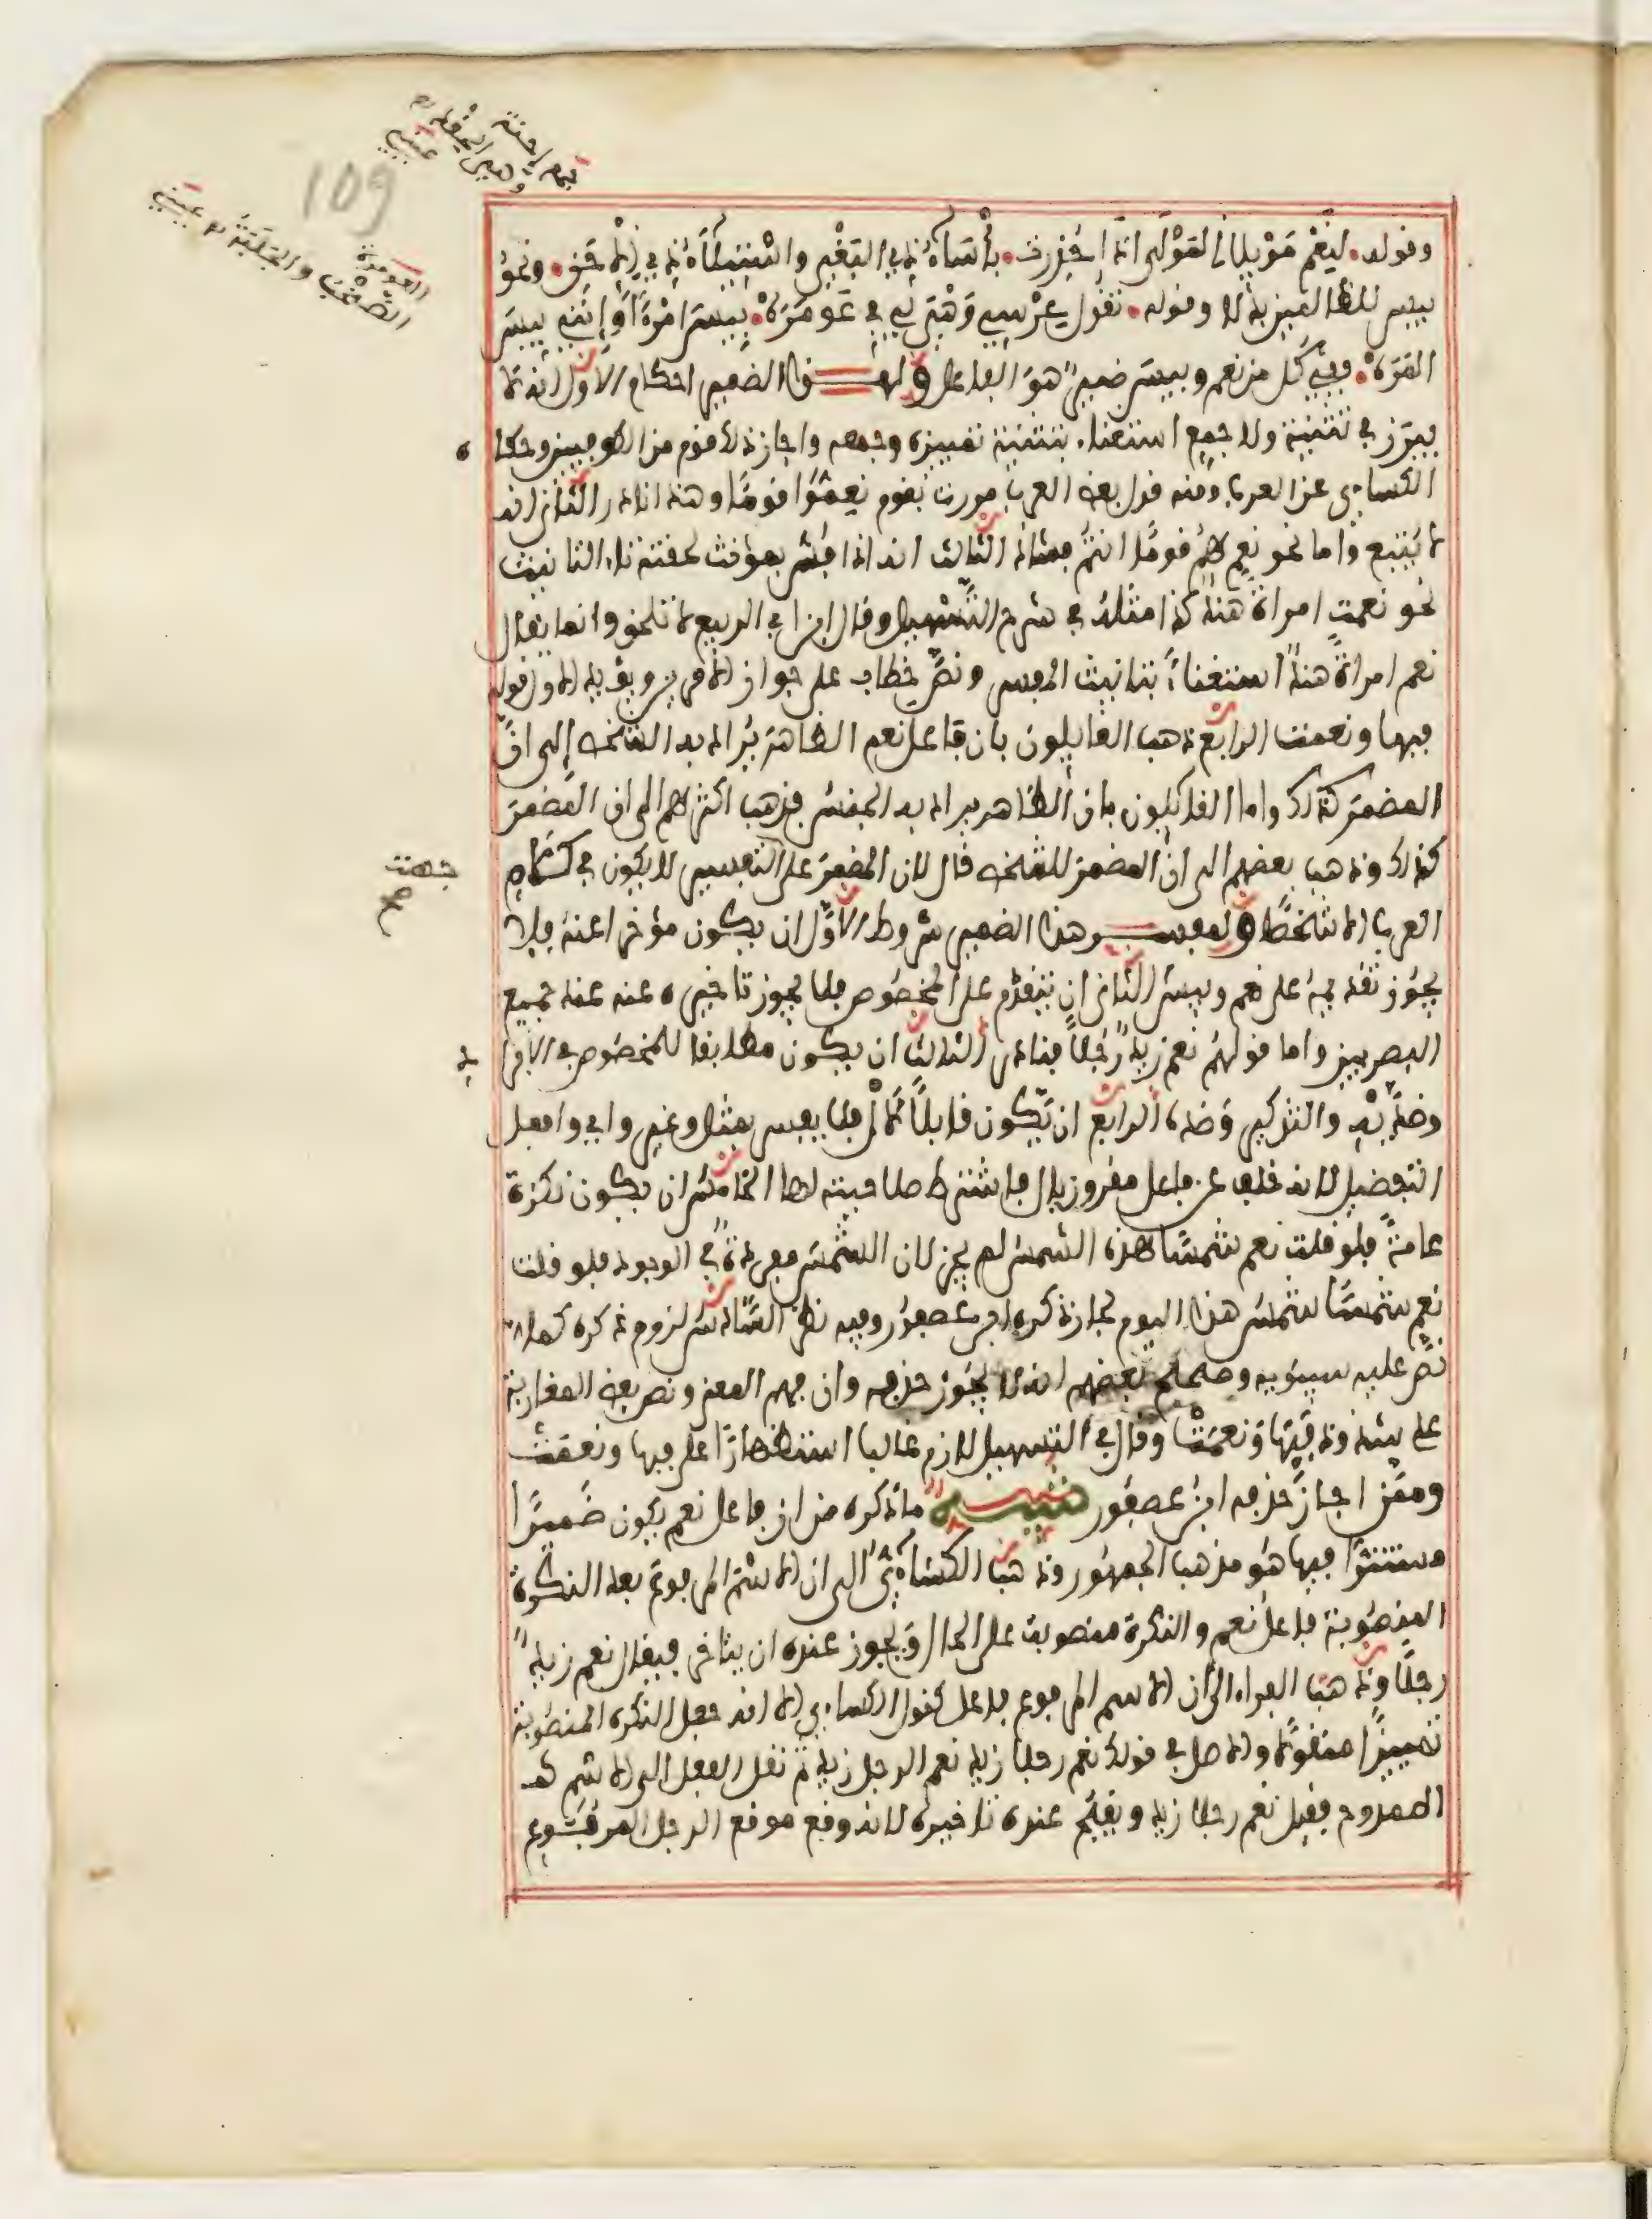 تمام احنة
وهي الحقد
عيني
109
العومرة
الصخب والجلبة عيني
وقوله لنعم موئلا المولى اذا حذرت بأساء ذي البغي واستيلاء ذي الاحن ونحو
بيس للظالمين بدلا وقوله تقول عرسي وهي لي في عومره بيس امرءا وانني بيس
المره ففي كل من نعم وبيس ضمير هو الفاعل ولهذا الضمير احكام الاول انه لا
يبرز في تثنية ولا جمع استغناء بتثنية تمييزه وجمعه واجاز ذلك قوم من الكوفيين وحكاه
الكساءي عن العرب ومنه قول بعض العرب مررت بقوم نعموا قوما وهذا نادر الثاني انه
لا يتبع واما نحو نعم هم قوما انتم فشاذ الثالث انه اذا فسر بمؤنث لحقته تاء التانيث
نحو نعمت امراة هند كذا مثله في شرح التسهيل وقال ابن ابي الربيع لا تلحق وانما يقال
نعم امراة هند استغناء بتانيث المفسر ونص خطاب على جواز الامرين ويؤيد الاول قوله
فبها ونعمت الرابع ذهب القايلون بان فاعل نعم الظاهر يراد به الشخص الى ان
المضمر كذلك واما القايلون بان الظاهر يراد به الجنس فذهب اكثرهم الى ان المضمر
كذلك وذهب بعضهم الى ان المضمر للشخص قال لان المضمر على التفسير لا يكون في كلام
شهت
صح
العرب الا شخصا ولمفسر هذا الضمير شروط الاول ان يكون مؤخرا عنه فلا
يجوز تقديمه على نعم وبيس الثاني ان يتقدم على المخصوص فلا يجوز تاخيره عنه عند جميع
البصريين واما قولهم نعم زيد رجلا فنادر الثالث ان يكون مطابقا للمخصوص في الافرا
د
وضديه والتذكير وضده الرابع ان يكون قابلا لأل فلا يفسر بمثل وغير واي وافعل
التفضيل لانه خلف عن فاعل مقرون بال فاشترط صلاحيته لها الخامس ان يكون نكرة
عامة فلو قلت نعم شمسا هذه الشمس لم يجز لان الشمس مفردة في الوجود فلو قلت
نعم شمسا شمس هذا اليوم لجاز ذكره ابن عصفور وفيه نظر السادس لزوم ذكره كما
نص عليه سيبويه وصحح بعضهم انه لا يجوز حذفه وان فهم المعنى ونص بعض المغاربة
على شذوذ فبها ونعمت وقال في التسهيل لازم غالبا استظهارا على فبها ونعمت
وممن اجاز حذفه ابن عصفور تنبيه ما ذكره من ان فاعل نعم يكون ضميرا
مستترا فيها هو مذهب الجمهور وذهب الكساءي الى ان الاسم المرفوع بعد النكرة
المنصوبة فاعل نعم والنكرة منصوبة على الحال ويجوز عنده ان يتاخر فيقال نعم زيد
رجلا وذهب الفراء الى ان الاسم المرفوع فاعل كقول الكساءي الا انه جعل النكرة المنصوبة
تمييزا منقولا والاصل في قولك نعم رجلا زيد نعم الرجل زيد ثم نقل الفعل الى الاسم
الممدوح فقيل نعم رجلا زيد ويقبح عنده تاخيره لانه وقع موقع الرجل المرفوع